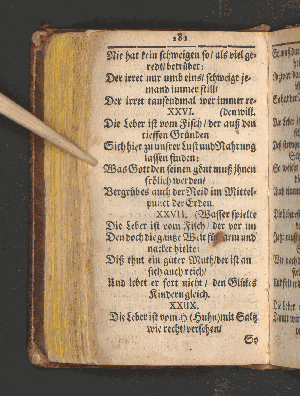 181
Nie hat kein schweigen so/ als viel ge-
redt/ betrübet:
Der irret nur umb eins/ schweigt je-
mand immer still/
Der irret tausendmal wer immer re-
XXVI. (den will.
Die Leber ist vom Fisch/ der auß den
tieffen Gründen
Sich hier zu unsrer Lust und Nahrung
lassen finden:
Was Gott den seinen gönt muß jhnen
frölich werden/
Vergrübes auch der Neid im Mittel-
punct der Erden.
XXVII. (Wasser spielte
Die Leber ist vom Fisch/ der vor im
Den doch die gantze Welt für arm und
nacket hielte:
Diß thut ein guter Muth/ der ist an
sich auch reich/
Und lebet er fort nicht/ den Glückes
Kindern gleich.
XXIIX.
Die Leber ist vom H (Huhn) mit Saltz
wie recht/ versehen/
So